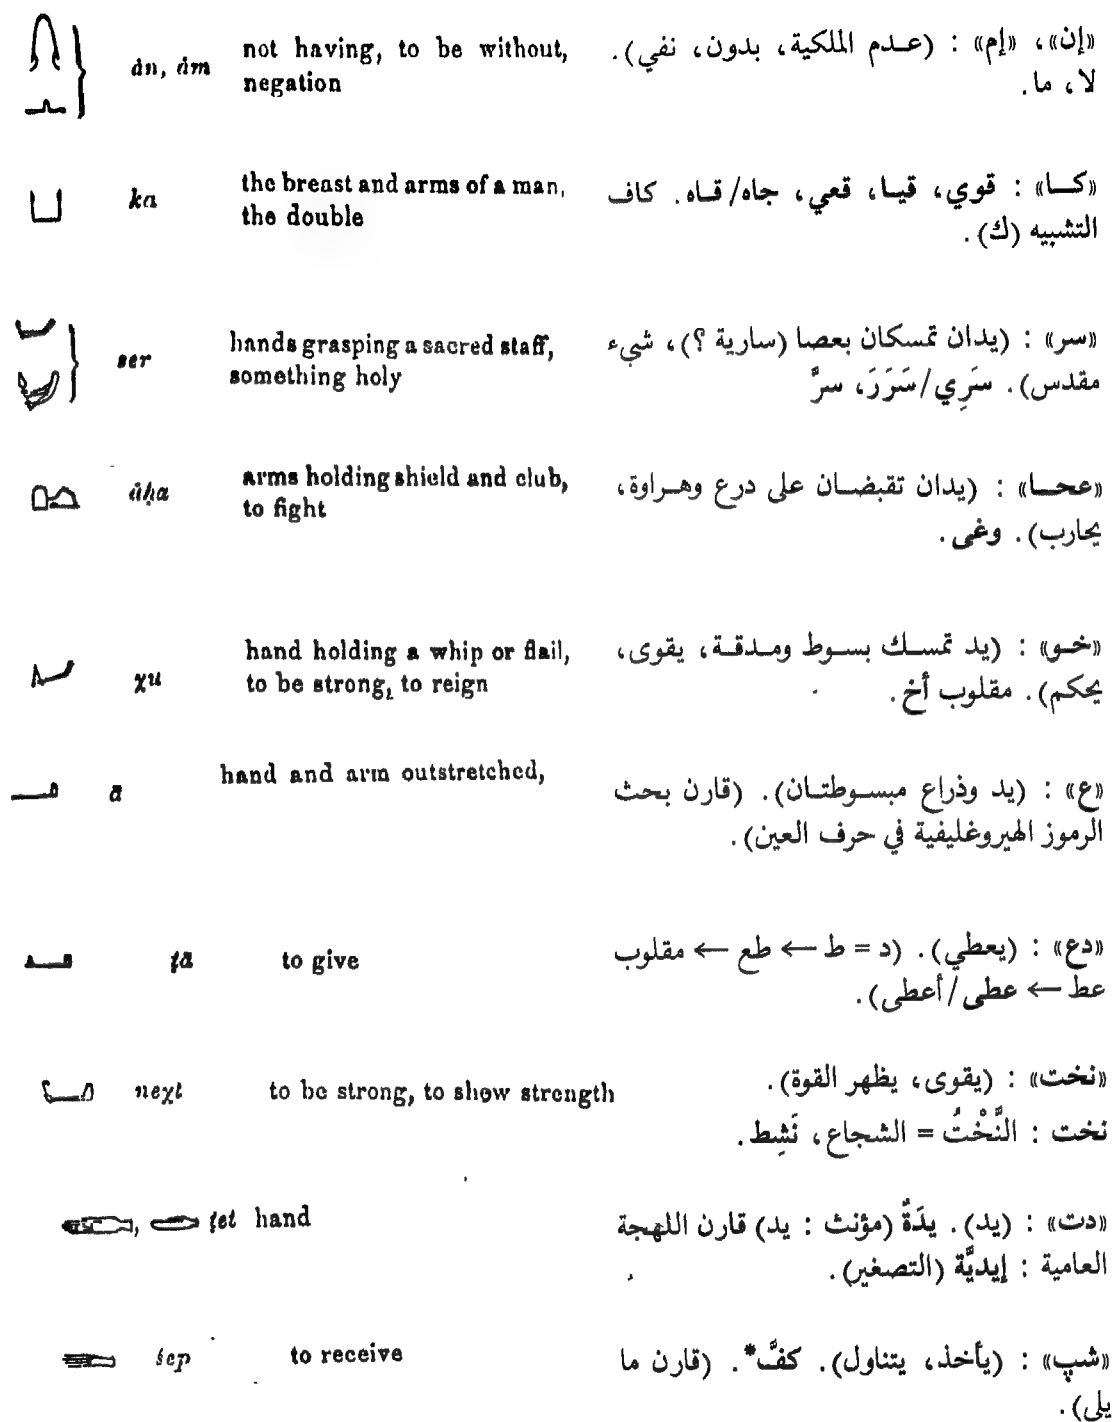 ȧn, ȧm
not having, to be without,
negation
«إن»، «إم» : (عـدم الملكية، بدون، نفي).
لا، ما.
ka
the breast and arms of a man,
the double
«كـا» : قوي، قيـا، قعي، جاه/قـاه. كاف
التشبيه (ك).
ser
hands grasping a sacred staff,
something holy
«سر» : (يدان تمسكان بعصا (سارية ؟)، شيء
مقدس). سَرِي/سَرَرَ، سرٌّ
āḥa
arms holding shield and club,
to fight
«عحـا» : (يدان تقبضـان على درع وهـراوة،
يحارب). وغى.
χu
hand holding a whip or flail,
to be strong, to reign
«خـو» : (يد تمسـك بسـوط ومـدقـة، يقوى،
يحكم). مقلوب أخ.
ā
hand and arm outstretched,
«ع» : (يد وذراع مبسـوطتـان). (قارن بحث
الرموز الهيروغليفية في حرف العين).
ṭā
to give
«دع» : (يعطي). (د = ط ← طع ← مقلوب
عط ← عطى/أعطى).
neχt
to be strong, to show strength
«نخت» : (يقوى، يظهر القوة).
نخت : النَّخْتُ = الشجاع، نَشِط.
ṭet hand
«دت» : (يد). يدَةٌ (مؤنث : يد) قارن اللهجة
العامية : إيديَّة (التصغير).
šep
to receive
«شپ» : (يأخذ، يتناول). كفَّ*. (قارن ما
يلي).